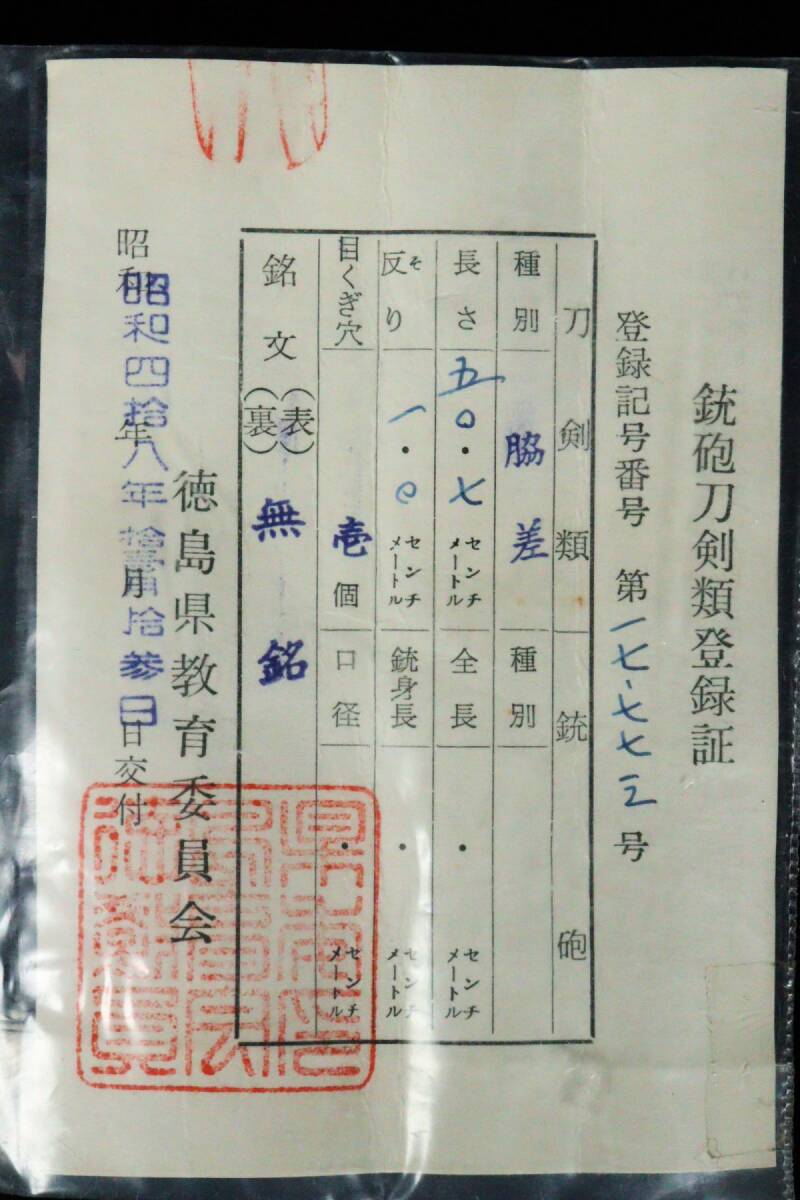 銃砲刀剣類登録証
登録記号番号 第一七、七七三号
刀剣類
銃砲
種別 脇差
種別
長さ 五〇・七 センチメートル
全長 ・ センチメートル
反り そ 一・〇 センチメートル
銃身長 ・ センチメートル
目くぎ穴 壱個
口径 ・ センチメートル
銘文 (表) 無銘
(裏)
徳島県教育委員会
昭和 年 月 日交付
昭和四拾八年 拾参日